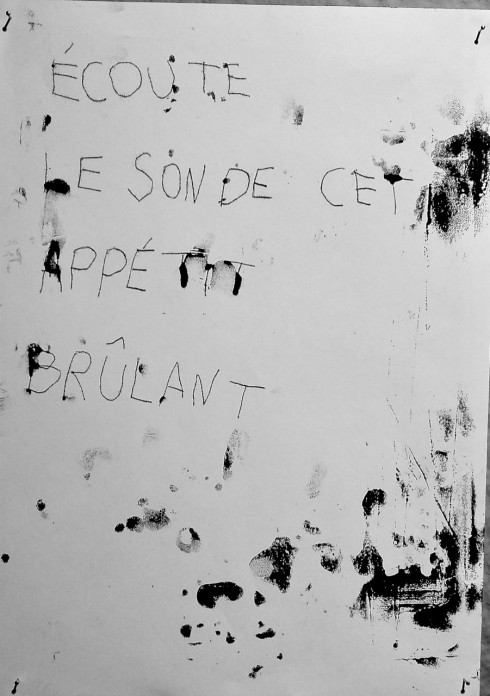 ÉCOUTE
LE SON DE CET
APPÉTIT
BRÛLANT